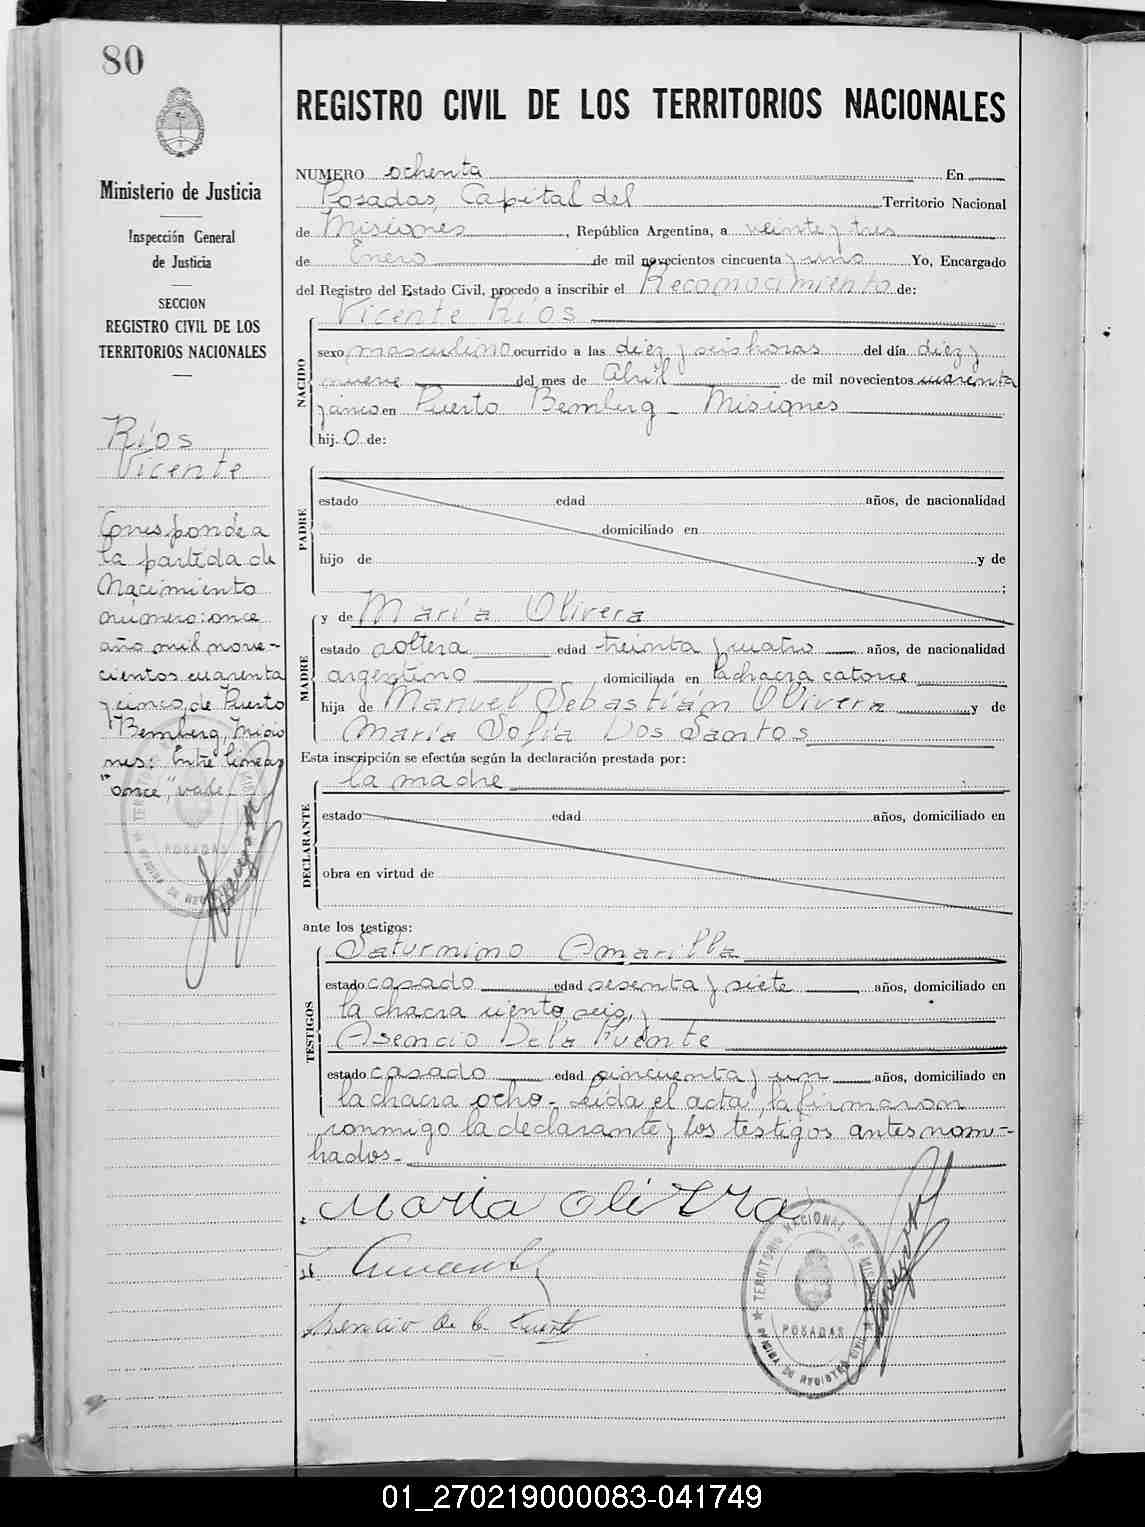 80
Ministerio de Justicia
Inspección General
de Justicia
SECCION
REGISTRO CIVIL DE LOS
TERRITORIOS NACIONALES
Ríos
Vicente
Corresponde a
la partida de
Nacimiento
número: once
año mil nove-
cientos cuarenta
y cinco, de Puerto
Bemberg, Misio
nes: Entre líneas
"once", vale.
REGISTRO CIVIL DE LOS TERRITORIOS NACIONALES
NUMERO ochenta En
Posadas, Capital del Territorio Nacional
de Misiones, República Argentina, a veinte y tres
de Enero de mil novecientos cincuenta y uno Yo, Encargado
del Registro del Estado Civil, procedo a inscribir el Reconocimiento de:
NACIDO
Vicente Ríos
sexo masculino ocurrido a las diez y seis horas del día diez y
nueve del mes de Abril de mil novecientos cuarenta
y cinco en Puerto Bemberg - Misiones
hij o de:
PADRE
estado edad años, de nacionalidad
domiciliado en
hijo de y de
;
MADRE
y de María Olivera
estado soltera edad treinta y cuatro años, de nacionalidad
argentino domiciliada en la chacra catorce
hija de Manuel Sebastián Olivera y de
María Sofía Dos Santos
Esta inscripción se efectúa según la declaración prestada por:
DECLARANTE
la madre
estado edad años, domiciliado en
obra en virtud de
ante los testigos:
TESTIGOS
Saturnino Amarilla
estado casado edad sesenta y siete años, domiciliado en
la chacra ciento seis, y
Asencio De la Fuente
estado casado edad cincuenta y un años, domiciliado en
la chacra ocho - Leída el acta, la firmaron
conmigo la declarante y los testigos antes nom-
brados.-
Maria Olivera
Asencio de la Fuente
TERRITORIO NACIONAL DE MISIONES
POSADAS
OFICINA DE REGISTRO CIVIL
01_270219000083-041749